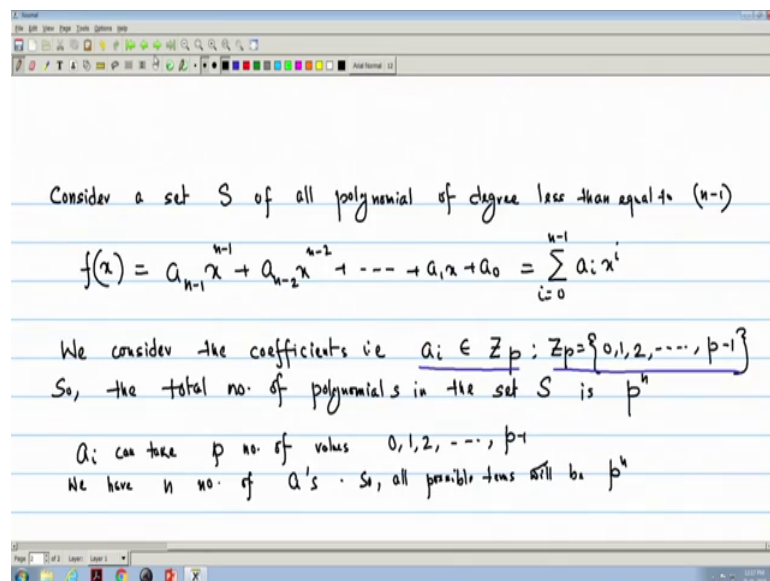 Journal
File Edit View Page Tools Options Help
Arial Normal 12
Consider a set S of all polynomial of degree less than equal to (n-1)
f(x) = a_{n-1}x^{n-1} + a_{n-2}x^{n-2} + ---- + a_1x + a_0 = \sum_{i=0}^{n-1} a_i x^i
We consider the coefficients i.e a_i ∈ Z_p : Z_p = {0, 1, 2, ----, p-1}
So, the total no. of polynomials in the set S is p^n
a_i can take p no. of values 0, 1, 2, ----, p-1
We have n no. of a's . So, all possible terms will be p^n
Page 2 of 2 Layer: Layer 1
12:37 PM